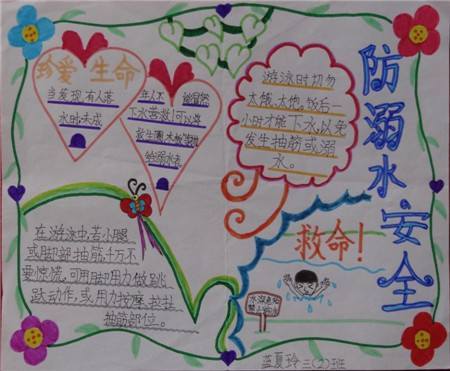 防溺水安全
珍爱生命
当发现有人落
水时未成
年人不
下水营救!可以将
给溺水者
游泳时切勿
太饿、太饱。饭后一
小时才能下水,以免
发生抽筋或溺
水。
在游泳中,若小腿
或脚部抽筋,千万不
要惊慌,可用脚用力做跳
跃动作,或用力按摩、拉扯
抽筋部位。
救命!
蓝夏玲三(2)班